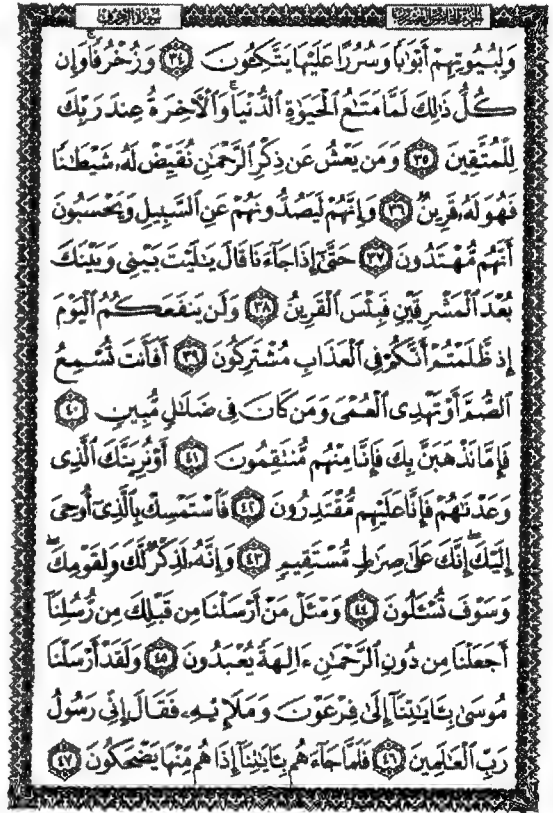 الجزء الخامس والعشرون سورة الزخرف
وَلِبُيُوتِهِمْ أَبْوَٰبًا وَسُرُرًا عَلَيْهَا يَتَّكِـُٔونَ ٣٤ وَزُخْرُفًا ۚ وَإِن
كُلُّ ذَٰلِكَ لَمَّا مَتَـٰعُ ٱلْحَيَوٰةِ ٱلدُّنْيَا ۚ وَٱلْـَٔاخِرَةُ عِندَ رَبِّكَ
لِلْمُتَّقِينَ ٣٥ وَمَن يَعْشُ عَن ذِكْرِ ٱلرَّحْمَـٰنِ نُقَيِّضْ لَهُۥ شَيْطَـٰنًا
فَهُوَ لَهُۥ قَرِينٌ ٣٦ وَإِنَّهُمْ لَيَصُدُّونَهُمْ عَنِ ٱلسَّبِيلِ وَيَحْسَبُونَ
أَنَّهُم مُّهْتَدُونَ ٣٧ حَتَّىٰٓ إِذَا جَآءَنَا قَالَ يَـٰلَيْتَ بَيْنِى وَبَيْنَكَ
بُعْدَ ٱلْمَشْرِقَيْنِ فَبِئْسَ ٱلْقَرِينُ ٣٨ وَلَن يَنفَعَكُمُ ٱلْيَوْمَ
إِذ ظَّلَمْتُمْ أَنَّكُمْ فِى ٱلْعَذَابِ مُشْتَرِكُونَ ٣٩ أَفَأَنتَ تُسْمِعُ
ٱلصُّمَّ أَوْ تَهْدِى ٱلْعُمْىَ وَمَن كَانَ فِى ضَلَـٰلٍ مُّبِينٍ ٤٠
فَإِمَّا نَذْهَبَنَّ بِكَ فَإِنَّا مِنْهُم مُّنتَقِمُونَ ٤١ أَوْ نُرِيَنَّكَ ٱلَّذِى
وَعَدْنَـٰهُمْ فَإِنَّا عَلَيْهِم مُّقْتَدِرُونَ ٤٢ فَٱسْتَمْسِكْ بِٱلَّذِىٓ أُوحِىَ
إِلَيْكَ ۖ إِنَّكَ عَلَىٰ صِرَٰطٍ مُّسْتَقِيمٍ ٤٣ وَإِنَّهُۥ لَذِكْرٌ لَّكَ وَلِقَوْمِكَ ۖ
وَسَوْفَ تُسْـَٔلُونَ ٤٤ وَسْـَٔلْ مَنْ أَرْسَلْنَا مِن قَبْلِكَ مِن رُّسُلِنَآ
أَجَعَلْنَا مِن دُونِ ٱلرَّحْمَـٰنِ ءَالِهَةً يُعْبَدُونَ ٤٥ وَلَقَدْ أَرْسَلْنَا
مُوسَىٰ بِـَٔايَـٰتِنَآ إِلَىٰ فِرْعَوْنَ وَمَلَإِي۟هِۦ فَقَالَ إِنِّى رَسُولُ
رَبِّ ٱلْعَـٰلَمِينَ ٤٦ فَلَمَّا جَآءَهُم بِـَٔايَـٰتِنَآ إِذَا هُم مِّنْهَا يَضْحَكُونَ ٤٧